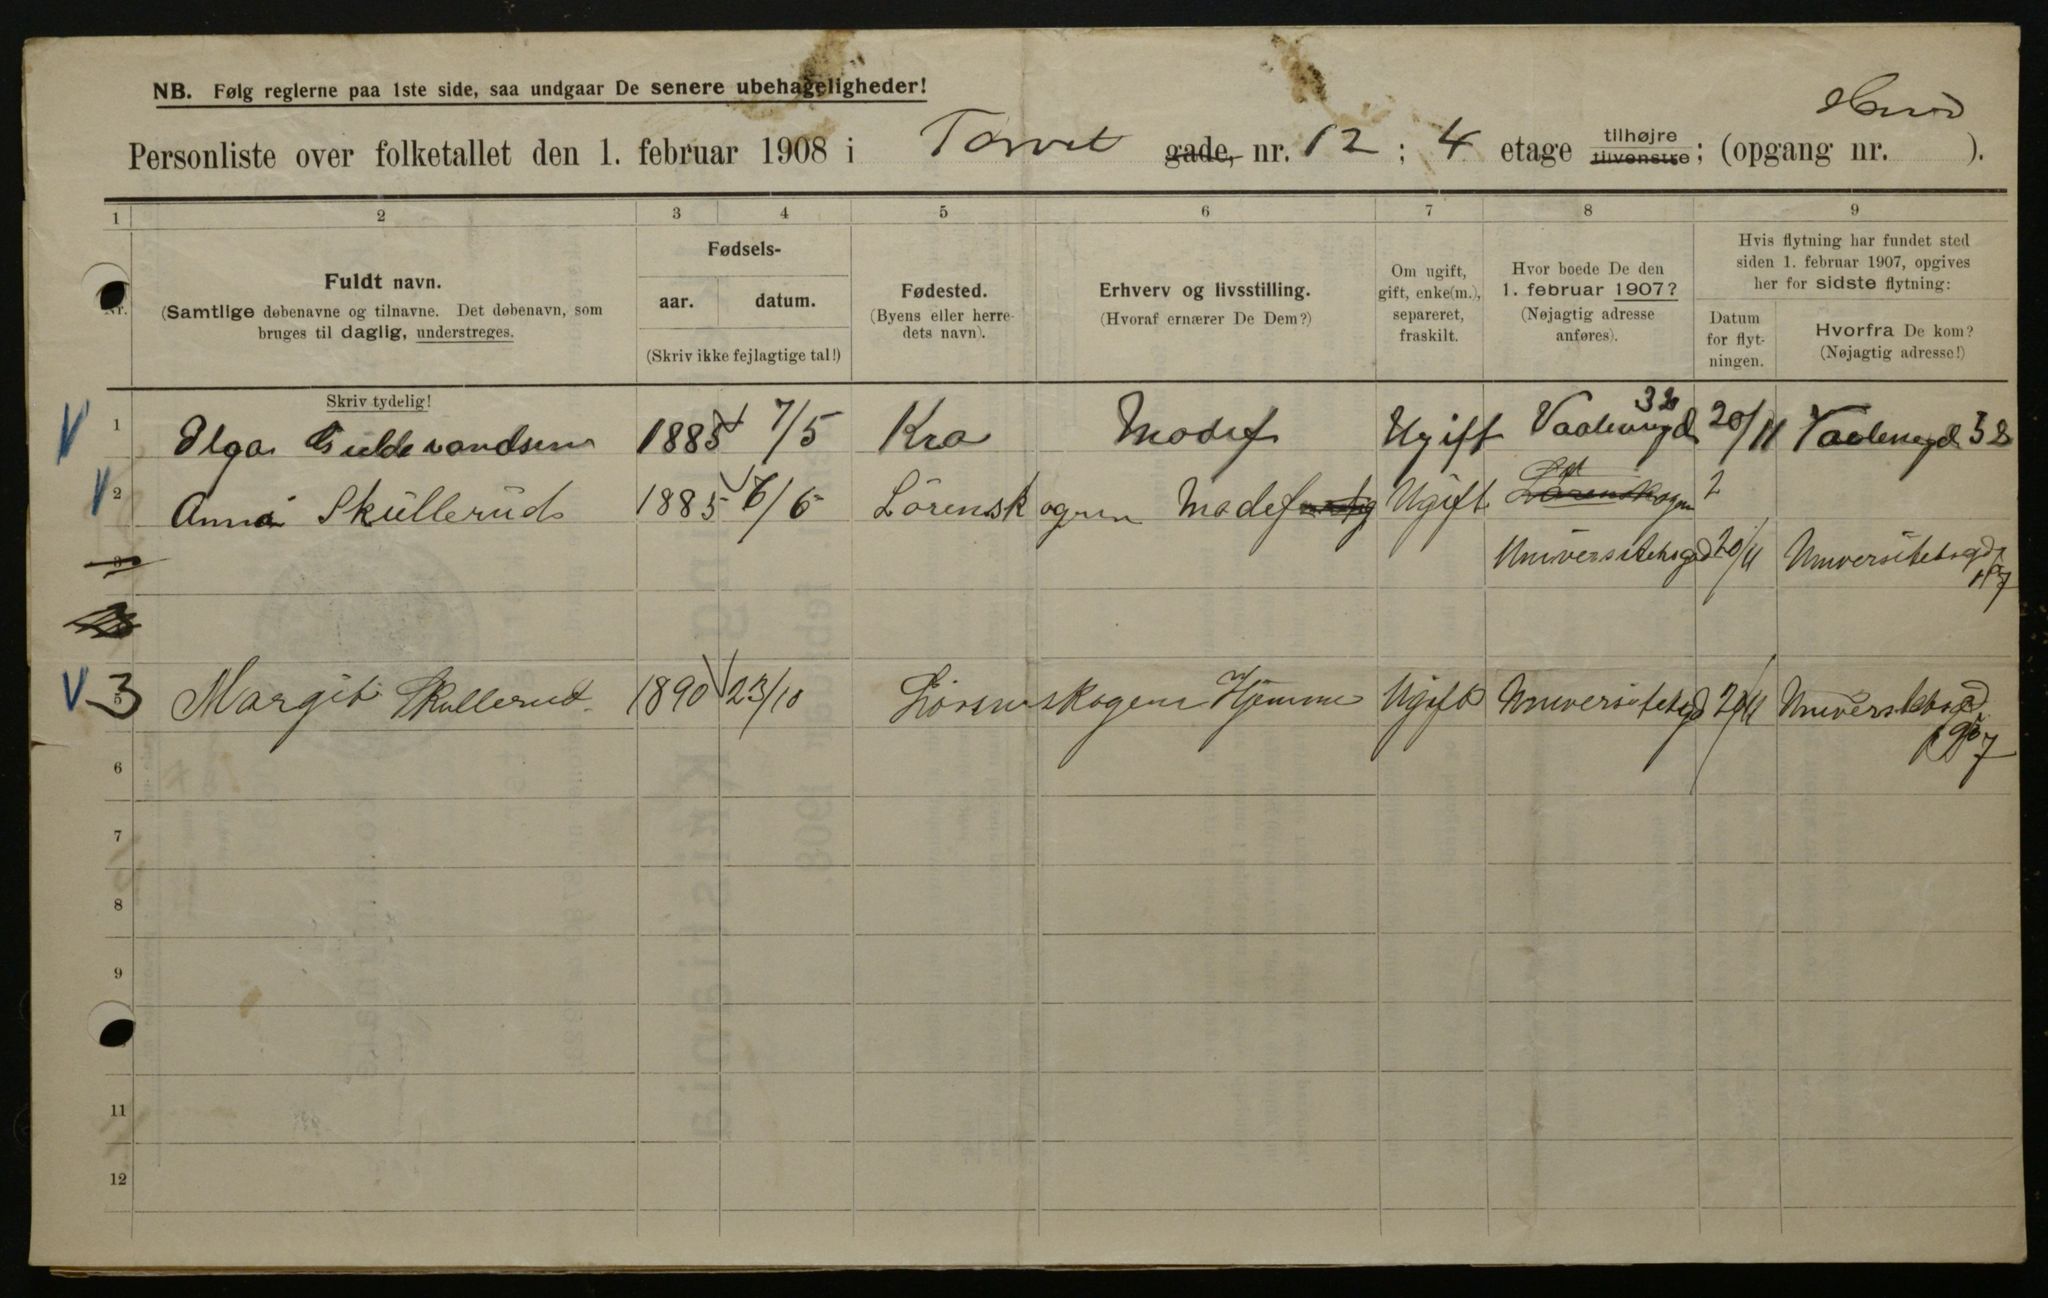 NB. Følg reglerne paa 1ste side, saa undgaar De senere ubehageligheder!
Personliste over folketallet den 1. februar 1908 i Torvet gade, nr. 12 ; 4 etage tilhøjre tilvenstre ; (opgang nr. ).
1 2 3 4 5 6 7 8 9
Nr.
Fuldt navn.
(Samtlige døbenavne og tilnavne. Det døbenavn, som
bruges til daglig, understreges.
Skriv tydelig!
Fødsels-
aar. datum.
(Skriv ikke fejlagtige tal!)
Fødested.
(Byens eller herre-
dets navn).
Erhverv og livsstilling.
(Hvoraf ernærer De Dem?)
Om ugift,
gift, enke(m.),
separeret,
fraskilt.
Hvor boede De den
1. februar 1907?
(Nøjagtig adresse
anføres).
Hvis flytning har fundet sted
siden 1. februar 1907, opgives
her for sidste flytning:
Datum
for flyt-
ningen.
Hvorfra De kom?
(Nøjagtig adresse!)
1 Olga Guldbrandsen 1885 7/5 Kra Modef Ugift 20/11
2 Anna Skullerud 1885 6/6 Lörenskogen Modef Ugift Lörenskogen 2
3 Universitetsgd 20/11 Universitetsgd
3 Margit Skullerud 1890 23/10 Lörenskogen Hjemme Ugift Universitetsgd 20/11 Universitetsgd
5
6
7
8
9
11
12